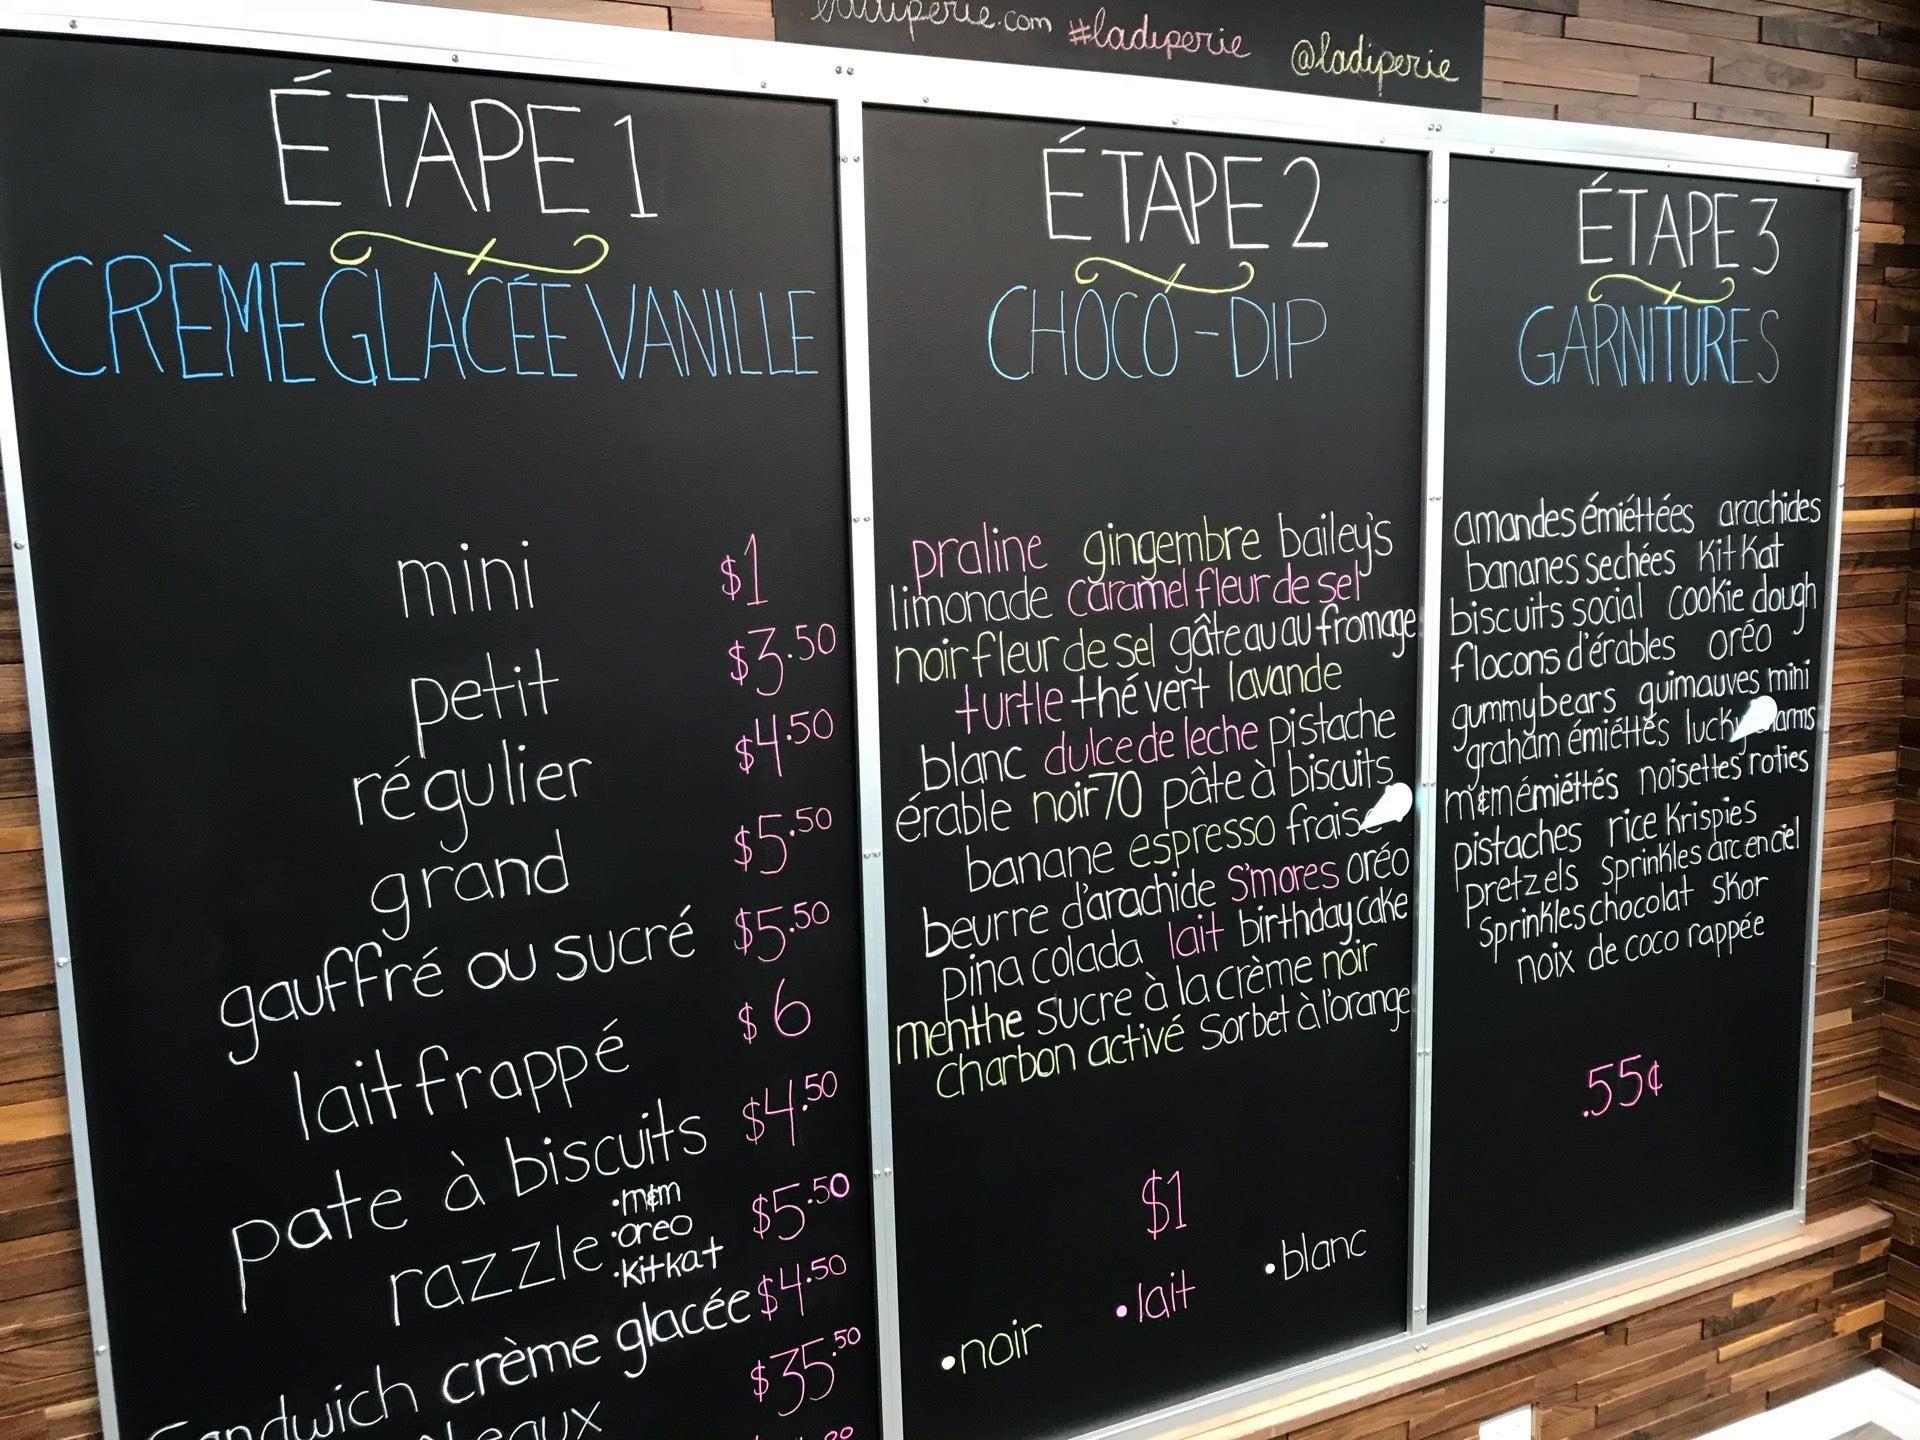 ladiperie.com #ladiperie @ladiperie
ÉTAPE 1
CRÈME GLACÉE VANILLE
mini $1
petit $3.50
régulier $4.50
grand $5.50
gauffré ou sucré $5.50
lait frappé $6
pate à biscuits $4.50
razzle •m&m •oreo •kitkat $5.50
Sandwich crème glacée $4.50
$35.50
ÉTAPE 2
CHOCO-DIP
praline gingembre bailey's
limonade caramel fleur de sel
noir fleur de sel gâteau au fromage
turtle thé vert lavande
blanc dulce de leche pistache
érable noir 70 pâte à biscuits
banane espresso fraise
beurre d'arachide S'mores oréo
pina colada lait birthday cake
menthe sucre à la crème noir
charbon activé Sorbet à l'orange
$1
•noir •lait •blanc
ÉTAPE 3
GARNITURES
amandes émiéttées arachides
bananes sechées Kit Kat
biscuits social cookie dough
flocons d'érables oréo
gummy bears guimauves mini
graham émiéttés lucky
m&m émiéttés noisettes roties
pistaches rice Krispies
pretzels Sprinkles arc en ciel
Sprinkles chocolat Skor
noix de coco rappée
.55¢